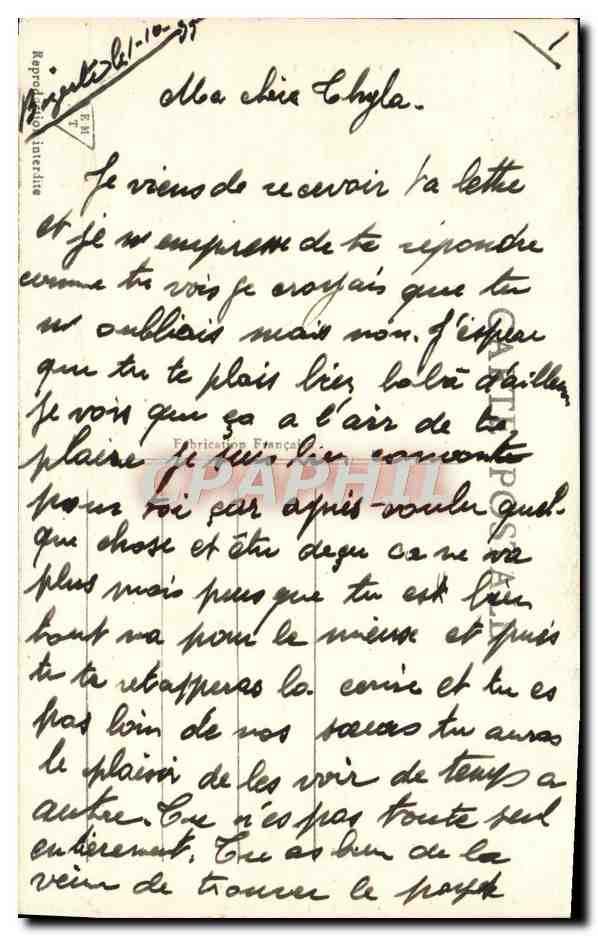 Bizerte le 1-10-35
1
Ma chère Thyla.
Je viens de recevoir ta lettre
et je m'empresse de te répondre
comme tu vois je croyais que tu
m'oubliais mais non. J'espère
que tu te plais bien là bà d'ailleurs
je vois que ça a l'air de te
plaire je suis bien contente
pour toi car après voulu quel-
que chose et être deçu ça ne va
plus mais puis que tu est bien
tout va pour le mieux et puis
tu te retapperas la cerise et tu es
pas loin de vos sœurs tu auras
le plaisir de les voir de temps a
autre. Tu n'es pas toute seul
entièrement. Tu as bien de la
veine de trouver le pays
Reproduction interdite
E M T
Fabrication Française
CARTE POSTALE
CPAPHIL